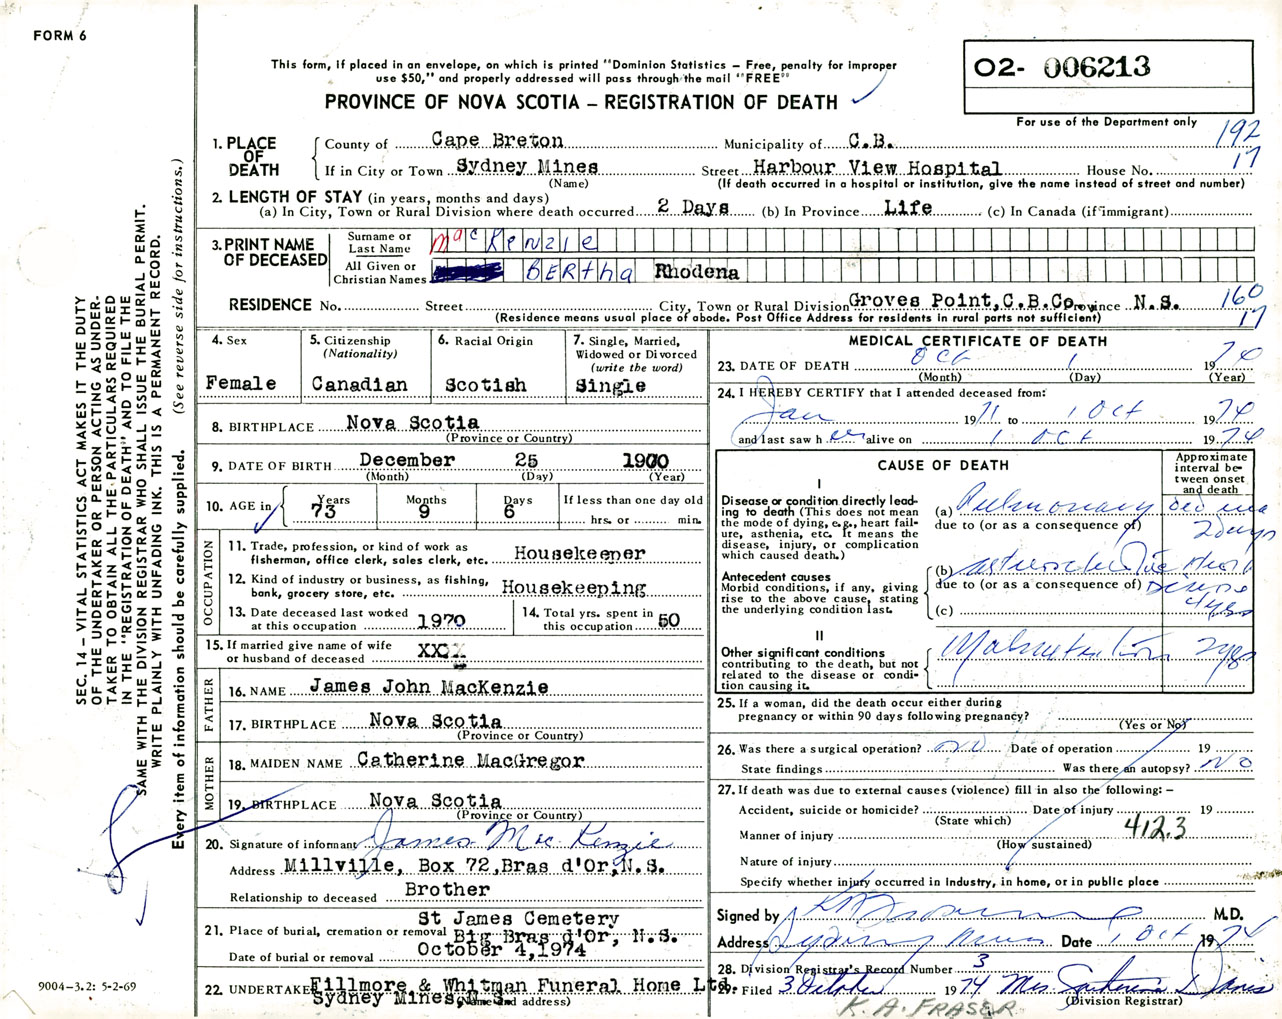 FORM 6
This form, if placed in an envelope, on which is printed "Dominion Statistics – Free, penalty for improper
use $50," and properly addressed will pass through the mail "FREE"
O2- 006213
PROVINCE OF NOVA SCOTIA – REGISTRATION OF DEATH
For use of the Department only
192
17
1. PLACE OF DEATH
County of Cape Breton Municipality of C.B.
If in City or Town Sydney Mines Street Harbour View Hospital House No.
(Name) (If death occurred in a hospital or institution, give the name instead of street and number)
2. LENGTH OF STAY (in years, months and days)
(a) In City, Town or Rural Division where death occurred 2 Days (b) In Province Life (c) In Canada (if immigrant)
3. PRINT NAME OF DECEASED
Surname or Last Name MacKenzie
All Given or Christian Names BERtha Rhodena
RESIDENCE No. Street City, Town or Rural Division Groves Point, C.B.Co. Province N.S.
160
17
(Residence means usual place of abode. Post Office Address for residents in rural parts not sufficient)
4. Sex
Female
5. Citizenship
(Nationality)
Canadian
6. Racial Origin
Scotish
7. Single, Married,
Widowed or Divorced
(write the word)
Single
8. BIRTHPLACE Nova Scotia
(Province or Country)
9. DATE OF BIRTH December 25 1900
(Month) (Day) (Year)
10. AGE in Years 73 Months 9 Days 6
If less than one day old
hrs. or min.
OCCUPATION
11. Trade, profession, or kind of work as
fisherman, office clerk, sales clerk, etc. Housekeeper
12. Kind of industry or business, as fishing,
bank, grocery store, etc. Housekeeping
13. Date deceased last worked
at this occupation 1970
14. Total yrs. spent in
this occupation 50
15. If married give name of wife
or husband of deceased XXXX
FATHER
16. NAME James John MacKenzie
17. BIRTHPLACE Nova Scotia
(Province or Country)
MOTHER
18. MAIDEN NAME Catherine MacGregor
19. BIRTHPLACE Nova Scotia
(Province or Country)
20. Signature of informant James MacKenzie
Address Millville, Box 72, Bras d'Or, N.S.
Relationship to deceased Brother
St James Cemetery
21. Place of burial, cremation or removal Big Bras d'Or, N.S.
Date of burial or removal October 4, 1974
22. UNDERTAKER Fillmore & Whitman Funeral Home Ltd.
Sydney Mines, N.S.
(Name and address)
MEDICAL CERTIFICATE OF DEATH
23. DATE OF DEATH Oct 1 1974
(Month) (Day) (Year)
24. I HEREBY CERTIFY that I attended deceased from:
Jan 1971 to 1 Oct 1974
and last saw her alive on 1 Oct 1974
CAUSE OF DEATH
Approximate
interval be-
tween onset
and death
I
Disease or condition directly lead-
ing to death (This does not mean
the mode of dying, e.g., heart fail-
ure, asthenia, etc. It means the
disease, injury, or complication
which caused death.)
(a) Pulmonary oedema
due to (or as a consequence of)
2 days
Antecedent causes
Morbid conditions, if any, giving
rise to the above cause, stating
the underlying condition last.
(b) arteriosclerotic Heart
due to (or as a consequence of) Disease
(c)
4 yrs
II
Other significant conditions
contributing to the death, but not
related to the disease or condi-
tion causing it.
Malnutrition 2 yrs
25. If a woman, did the death occur either during
pregnancy or within 90 days following pregnancy?
(Yes or No)
26. Was there a surgical operation? no Date of operation 19
State findings Was there an autopsy? NO
27. If death was due to external causes (violence) fill in also the following: –
Accident, suicide or homicide? Date of injury 19
(State which)
412.3
Manner of injury
(How sustained)
Nature of injury
Specify whether injury occurred in industry, in home, or in public place
Signed by M.D.
Address Sydney Mines Date 1 Oct 1974
28. Division Registrar's Record Number 3
29. Filed 3 October 1974 Mrs. Davis
(Division Registrar)
K. A. FRASER
SEC. 14 – VITAL STATISTICS ACT MAKES IT THE DUTY
OF THE UNDERTAKER OR PERSON ACTING AS UNDER-
TAKER TO OBTAIN ALL THE PARTICULARS REQUIRED
IN THE "REGISTRATION OF DEATH" AND TO FILE THE
SAME WITH THE DIVISION REGISTRAR WHO SHALL ISSUE THE BURIAL PERMIT.
WRITE PLAINLY WITH UNFADING INK. THIS IS A PERMANENT RECORD.
Every item of information should be carefully supplied. (See reverse side for instructions.)
9004-3.2: 5-2-69